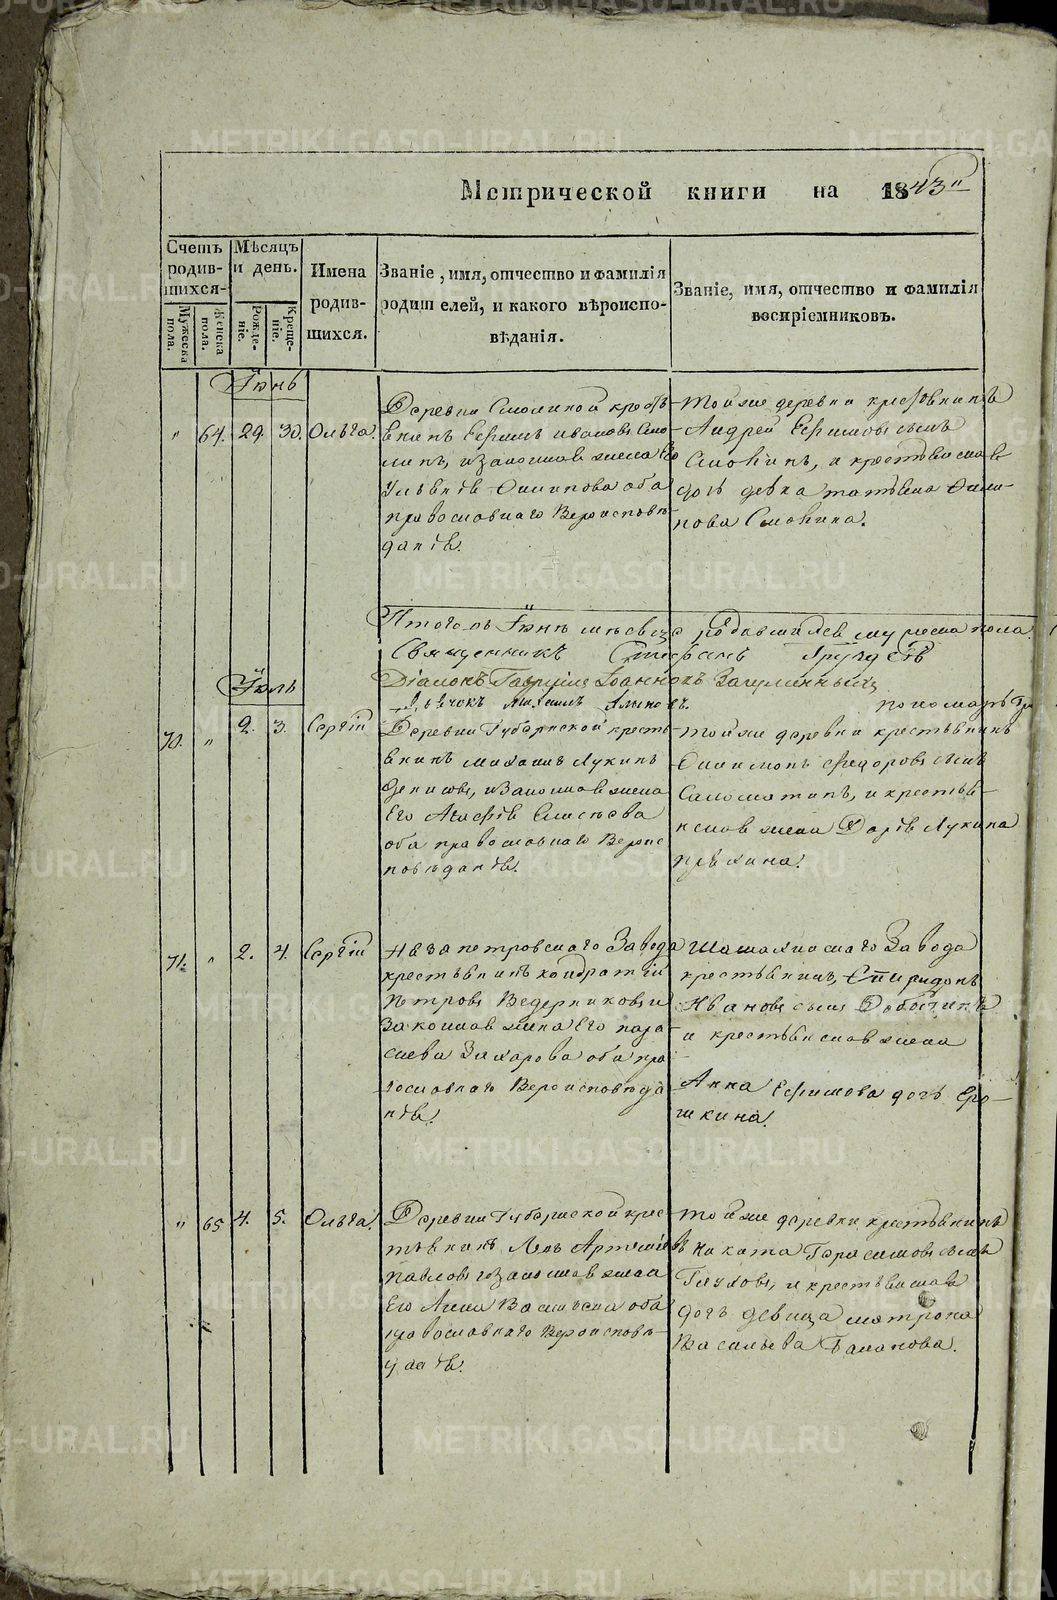 Метрической книги на 1843"
Счетъ родившихся.
Мужеска пола.
Женска пола.
Мѣсяцъ и день.
Рожденіе.
Крещеніе.
Имена родившихся.
Званіе, имя, отчество и фамилія родителей, и какого вѣроисповѣданія.
Званіе, имя, отчество и фамилія воспріемниковъ.
Іюнь
" 64. 29. 30. Ольга.
Деревни Смолиной кресть
янинъ Ефимъ Ивановъ Смо-
линъ, и законная жена Его
Филипова оба
православнаго Вероисповѣ-
данія.
Той же деревни крестьянинъ
Андрей Ефимовъ сынъ
Смолинъ, и крестьянская
дочь девка татьяна Фили-
пова Смолина.
Итого въ Іюнѣ месяце родившихся мужеска пола
Священникъ Стефанъ
Діаконъ Гавріилъ Іоанновъ
пономарь
Іюль
70. " 2. 3. Сергій
Деревни Губернской кресть
янинъ Михаилъ Лукинъ
и законная жена
Его Агафія
оба православнаго Вероис
повѣданія.
Той же деревни крестьянинъ
Филимонъ Федоровъ сынъ
Саломатинъ, и крестья-
нская жена Дарія Лукина
71. " 2. 4. Сергій
Нязапетровскаго Завода
крестьянинъ Кондратій
Петровъ Ведерниковъ и
Законная жена Его пара-
скева Захарова оба пра
вославнаго Вероисповѣда
нія.
Шемахинскаго Завода
крестьянинъ, Спиридонъ
Ивановъ сынъ
и крестьянская жена
Анна Ефимова дочь Еро-
шкина.
" 65 4. 5. Ольга.
Деревни Губернской крес-
тьянинъ Левъ Артемьевъ
Павловъ и Законная жена
Его Анна Васильева оба
православнаго Вероисповѣ-
данія.
Той же деревни крестьянинъ
Никита Герасимовъ сынъ
Глуховъ, и крестьянская
дочь девица матрона
Васильева Баланова.
METRIKI.GASO-URAL.RU